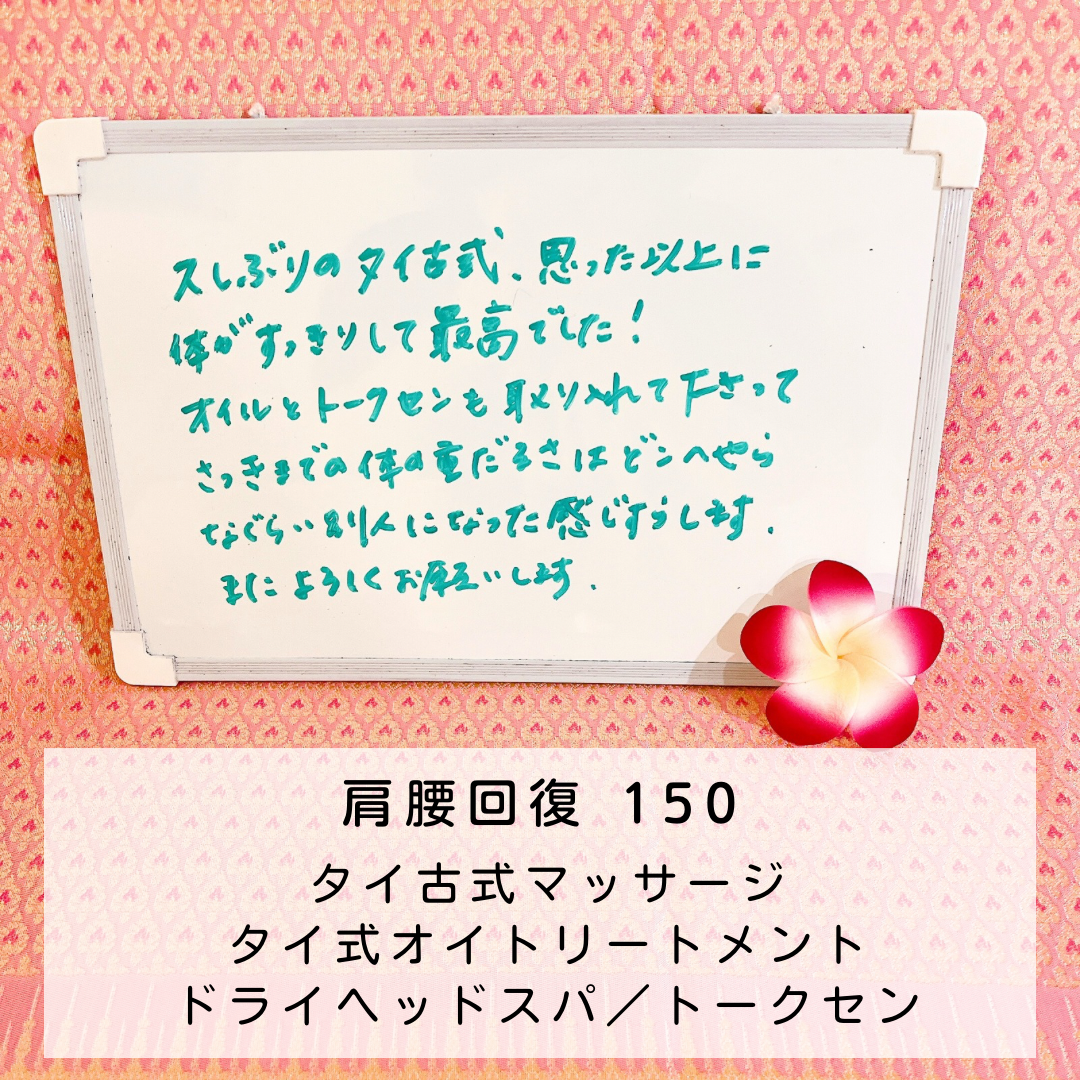 久しぶりのタイ古式、思った以上に
体がすっきりして最高でした!
オイルとトークセンも取り入れて下さって
さっきまでの体の重だるさはどこへやら
なぐらい別人になった感じすらします.
またよろしくお願いします.
肩腰回復 150
タイ古式マッサージ
タイ式オイトリートメント
ドライヘッドスパ/トークセン